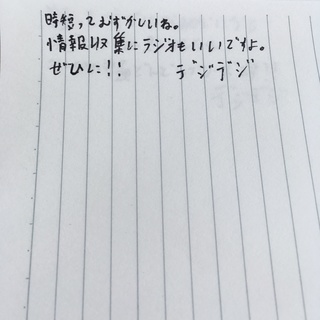 時短ってむずかしいね。
情報収集にラジオもいいですよ。
ぜひに!! デジデジ